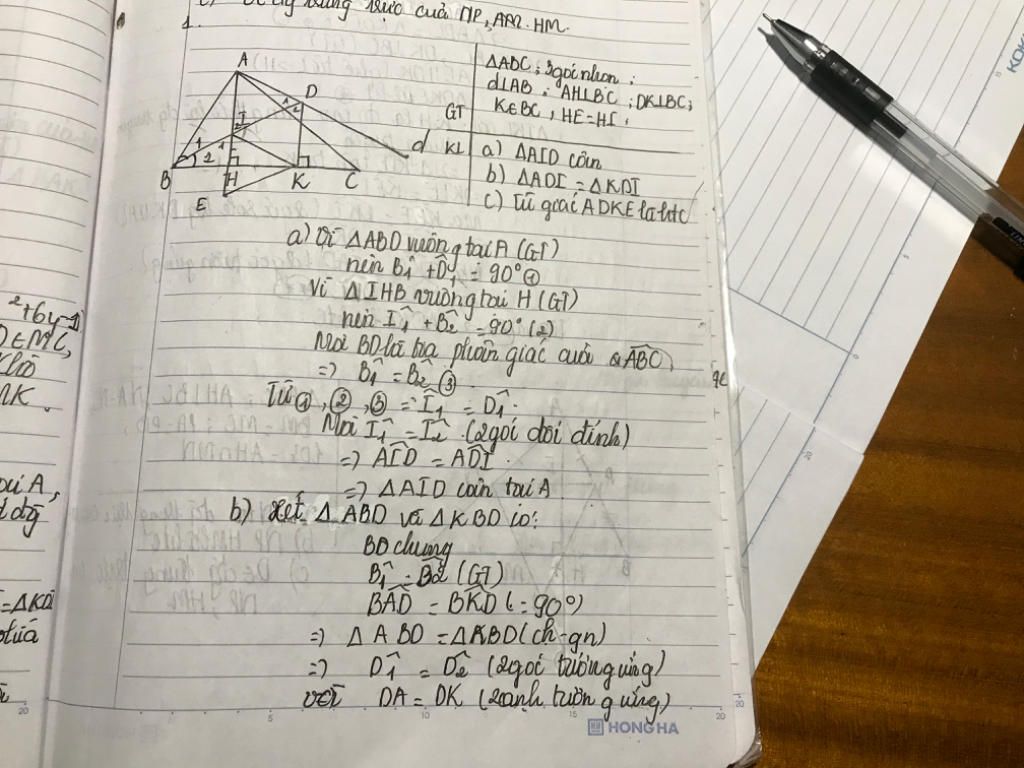 trực của NP, AM. HM.
1.
A
D
I
d
B
H
K
C
E
GT
ΔABC ; 3 góc nhọn ;
d⊥AB ; AH⊥BC ; DK⊥BC ;
K∈BC , HE=HI .
KL
a) ΔAID cân
b) ΔADI = ΔKDI
c) Tứ giác ADKE là htc
a) Vì ΔABD vuông tại A (GT)
nên B̂1 + D̂1 = 90° ①
Vì ΔIHB vuông tại H (GT)
nên Î1 + B̂2 = 90° (2)
Mà BD là tia phân giác của ABC
=> B̂1 = B̂2 ③
Từ ①, ②, ③ => Î1 = D̂1.
Mà Î1 = Î2 (2 góc đối đỉnh)
=> AID = ADI.
=> ΔAID cân tại A
b) Xét ΔABD và ΔKBD có:
BD chung
B̂1 = B̂2 (GT)
BAD = BKD (= 90°)
=> ΔABD = ΔKBD (ch-gn)
=> D̂1 = D̂2 (2 góc tương ứng)
DA = DK (2 cạnh tương ứng)
²+6y-1
D∈MC,
NK.
tại A,
=ΔKDI
5
10
15
20
HONG HA